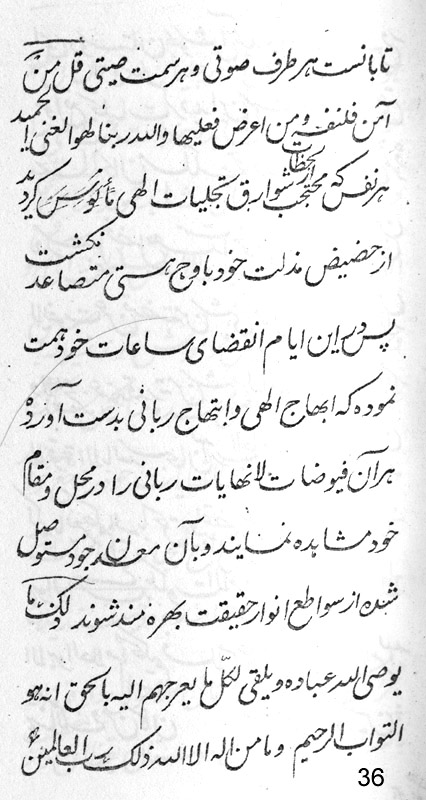 تابانست هر طرف صوتی و هر سمت صیتی قل من
آمن فلنفسه و من اعرض فعلیها والله ربنا لهو الغنی الحمید
هر نفس که محتجب لحظات شوارق تجلیات الهی مأیوس گردید
از حضیض مذلت خود باوج هستی متصاعد نگشت
پس در این ایام انقضای ساعات خود همت
نموده که ابهاج الهی و ابتهاج ربانی بدست آورده
هر آن فیوضات لانهایات ربانی را در محل و مقام
خود مشاهده نمایند و بآن معدن جود متوصل
شده از سواطع انوار حقیقت بهره مند شوند ذلک ما
یوصی الله عباده و یلقی لکل ما یعرجهم الیه بالحق انه هو
التواب الرحیم و ما من اله الا الله ذلک رب العالمین
36